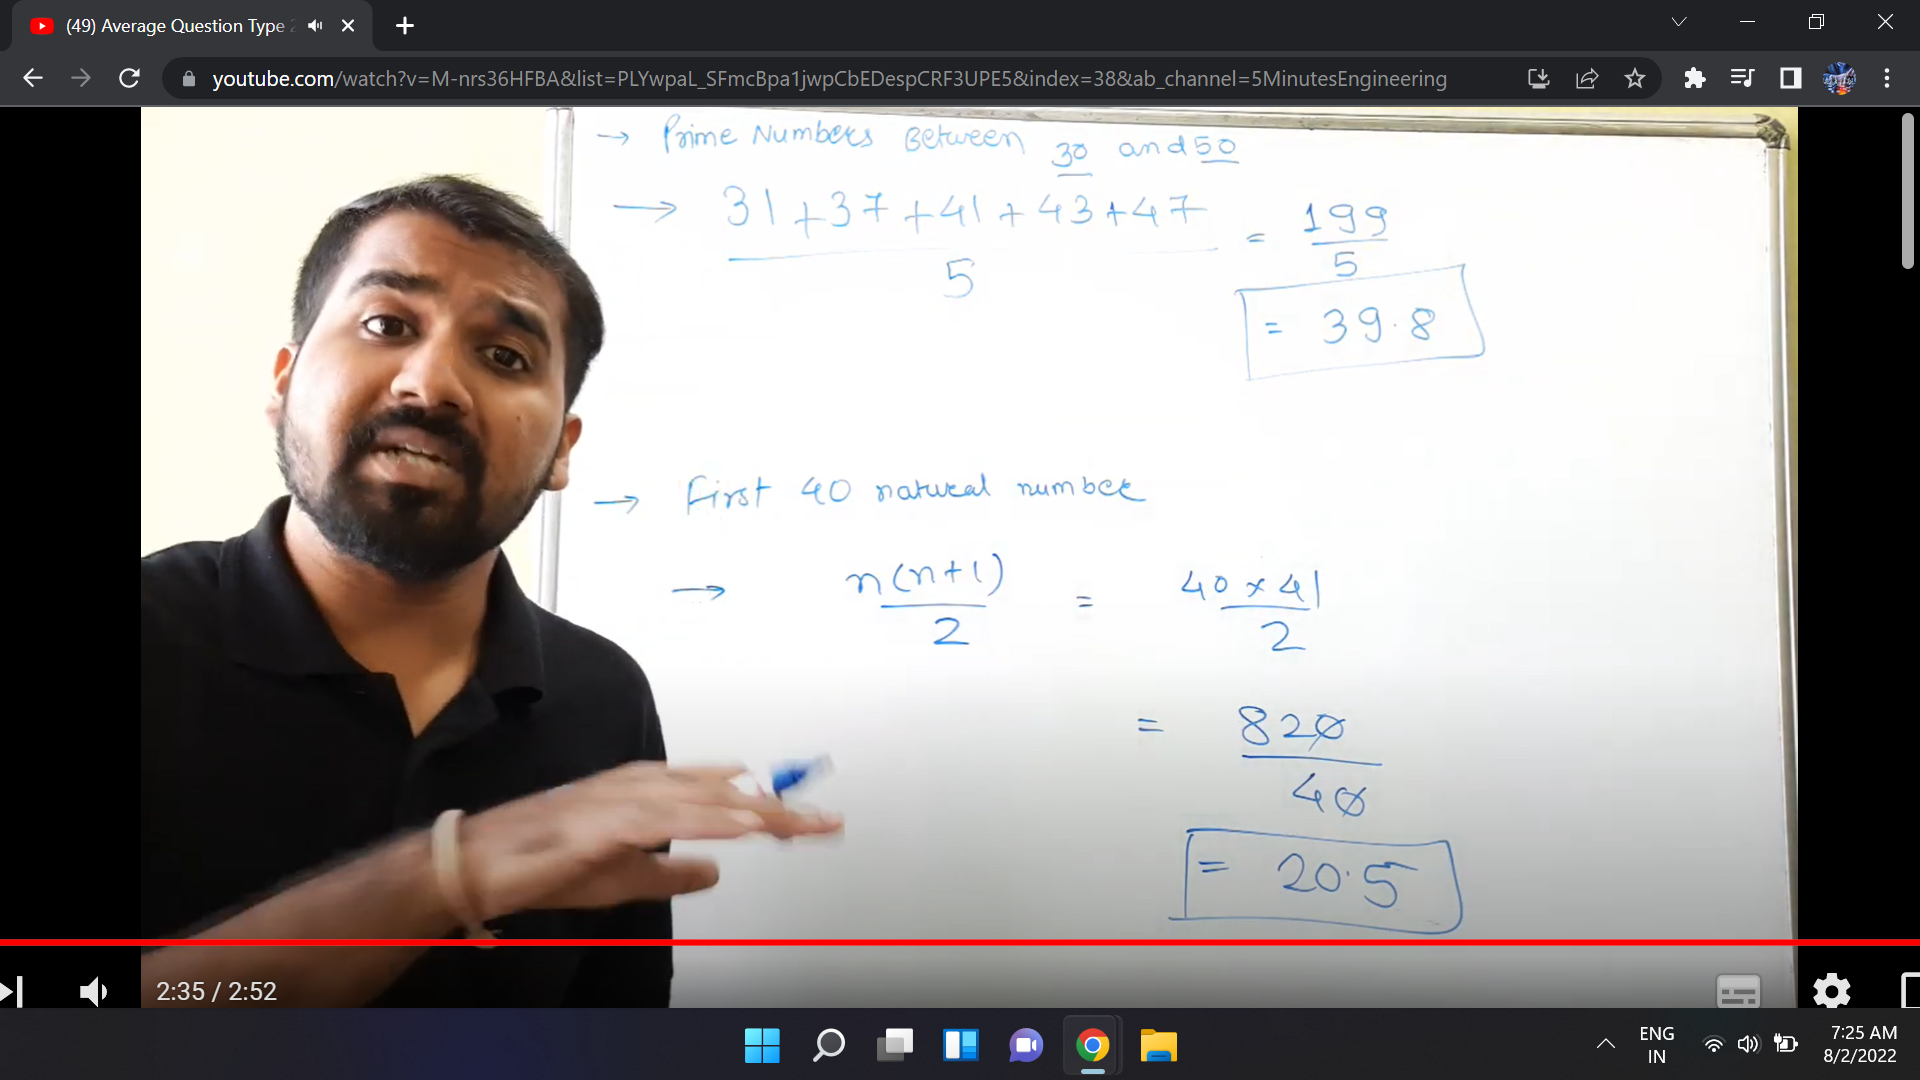 (49) Average Question Type 2
youtube.com/watch?v=M-nrs36HFBA&list=PLYwpaL_SFmcBpa1jwpCbEDespCRF3UPE5&index=38&ab_channel=5MinutesEngineering
→ Prime Numbers Between 30 and 50
→ 31+37+41+43+47
5
= 199
5
= 39.8
→ First 40 natural number
→ n(n+1)
2
= 40×41
2
= 820
40
= 20.5
2:35 / 2:52
ENG
IN
7:25 AM
8/2/2022